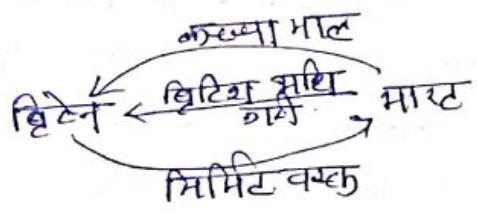 कच्चा माल
ब्रिटेन ब्रिटिश भारत
निर्मित वस्तु